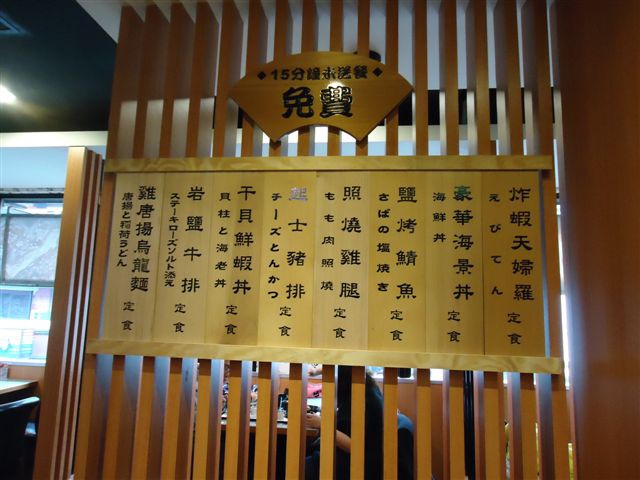 ◆15分鐘未送餐◆
免費
炸蝦天婦羅 定食
えびてん
豪華海景丼 定食
海鮮丼
鹽烤鯖魚 定食
さばの塩焼き
照燒雞腿 定食
もも肉照焼
起士豬排 定食
チーズとんかつ
干貝鮮蝦丼 定食
貝柱と海老丼
岩鹽牛排 定食
ステーキローズソルト添え
雞唐揚烏龍麵 定食
唐揚と稲荷うどん